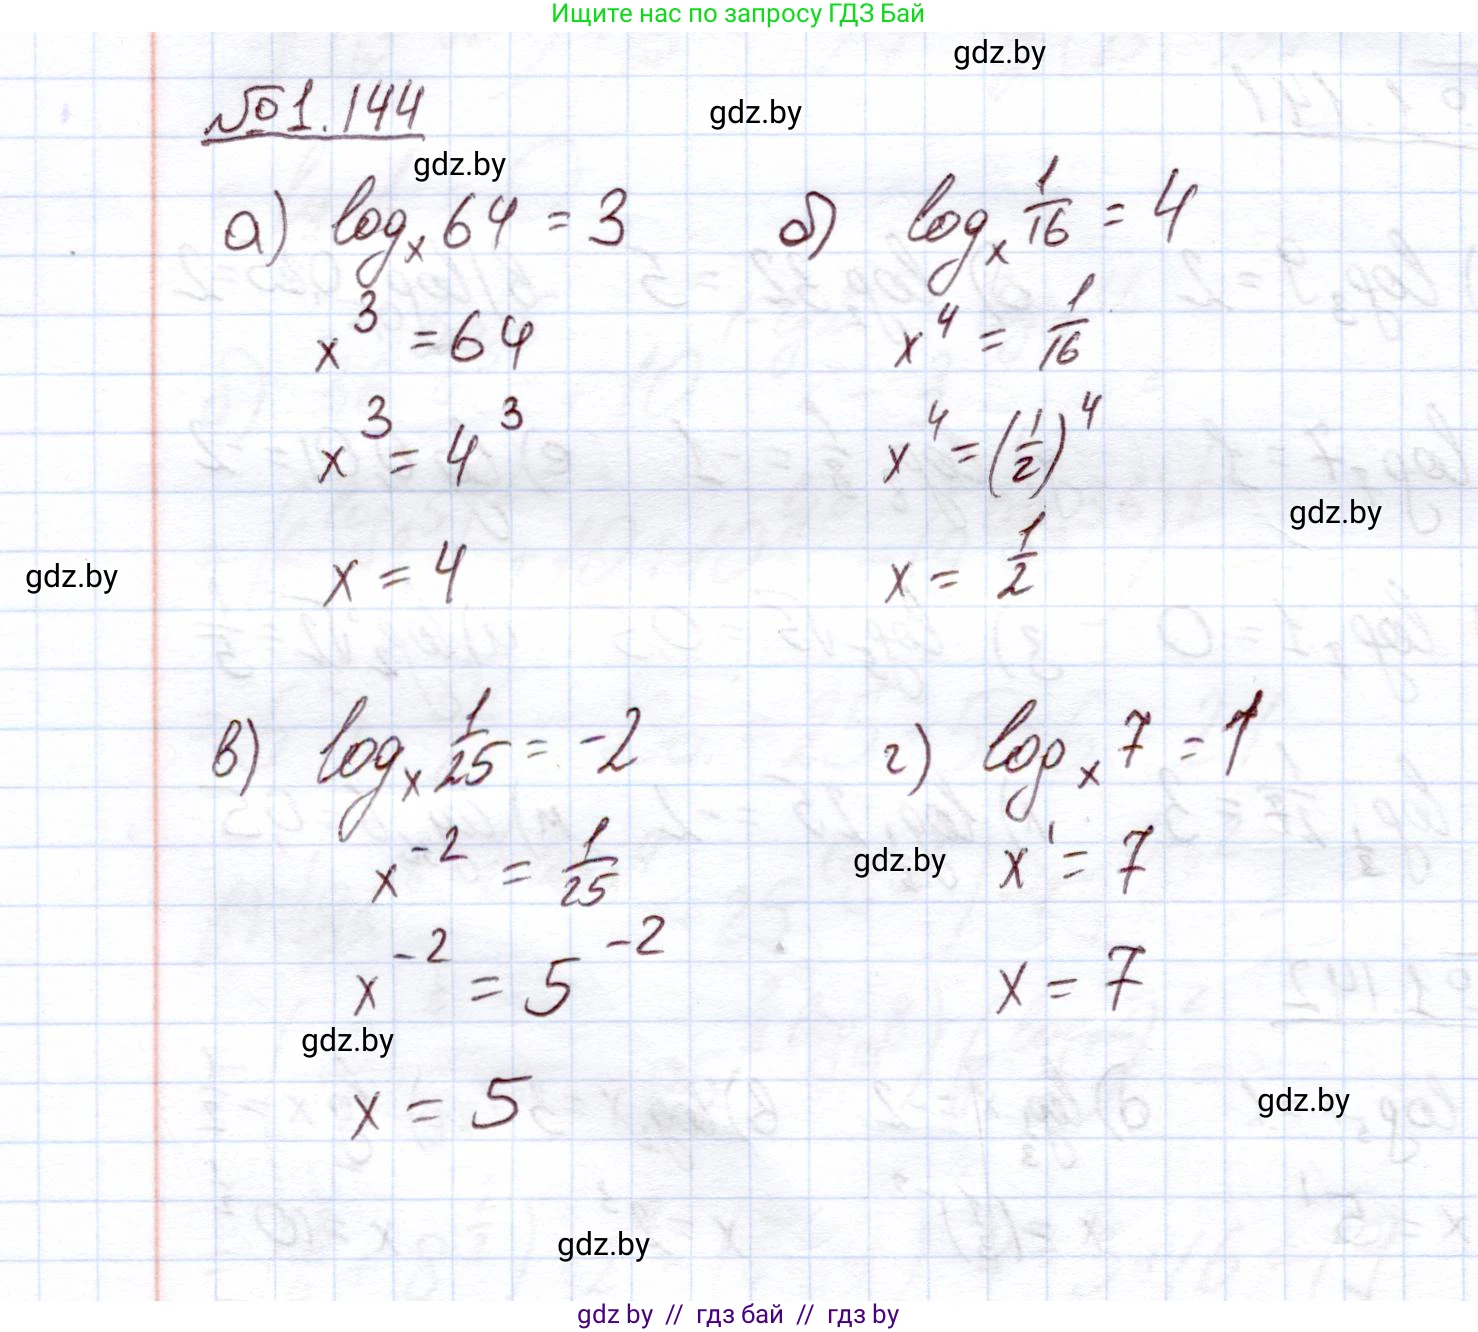 Ищите нас по запросу ГДЗ Бай
gdz.by
gdz.by
№1.144
gdz.by
а) log_x 64 = 3
x^3 = 64
x^3 = 4^3
x = 4
б) log_x 1/16 = 4
x^4 = 1/16
x^4 = (1/2)^4
x = 1/2
gdz.by
gdz.by
в) log_x 1/25 = -2
x^-2 = 1/25
x^-2 = 5^-2
x = 5
г) log_x 7 = 1
x^1 = 7
x = 7
gdz.by
gdz.by
gdz.by
gdz.by
gdz by // гдз бай // гдз by